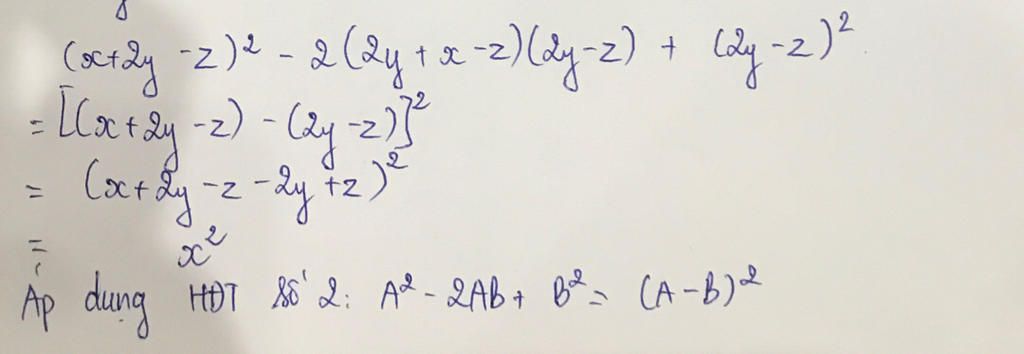 (x+2y -z)² - 2(2y + x -z)(2y-z) + (2y -z)²
= [(x+2y -z) - (2y -z)]²
= (x+2y -z -2y +z)²
= x²
Áp dụng HĐT số 2: A² - 2AB + B² = (A-B)²